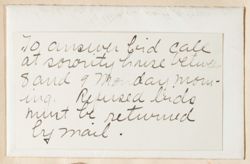 To answer bid call
at sorority house between
8 and 9 Monday morn-
ing. Refused bids
must be returned
by mail.